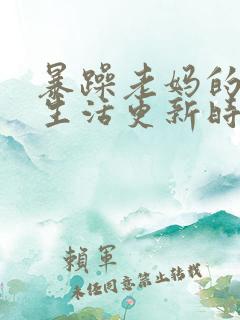 暴躁老妈的
生活更新时
賴軍
未经同意禁止转载